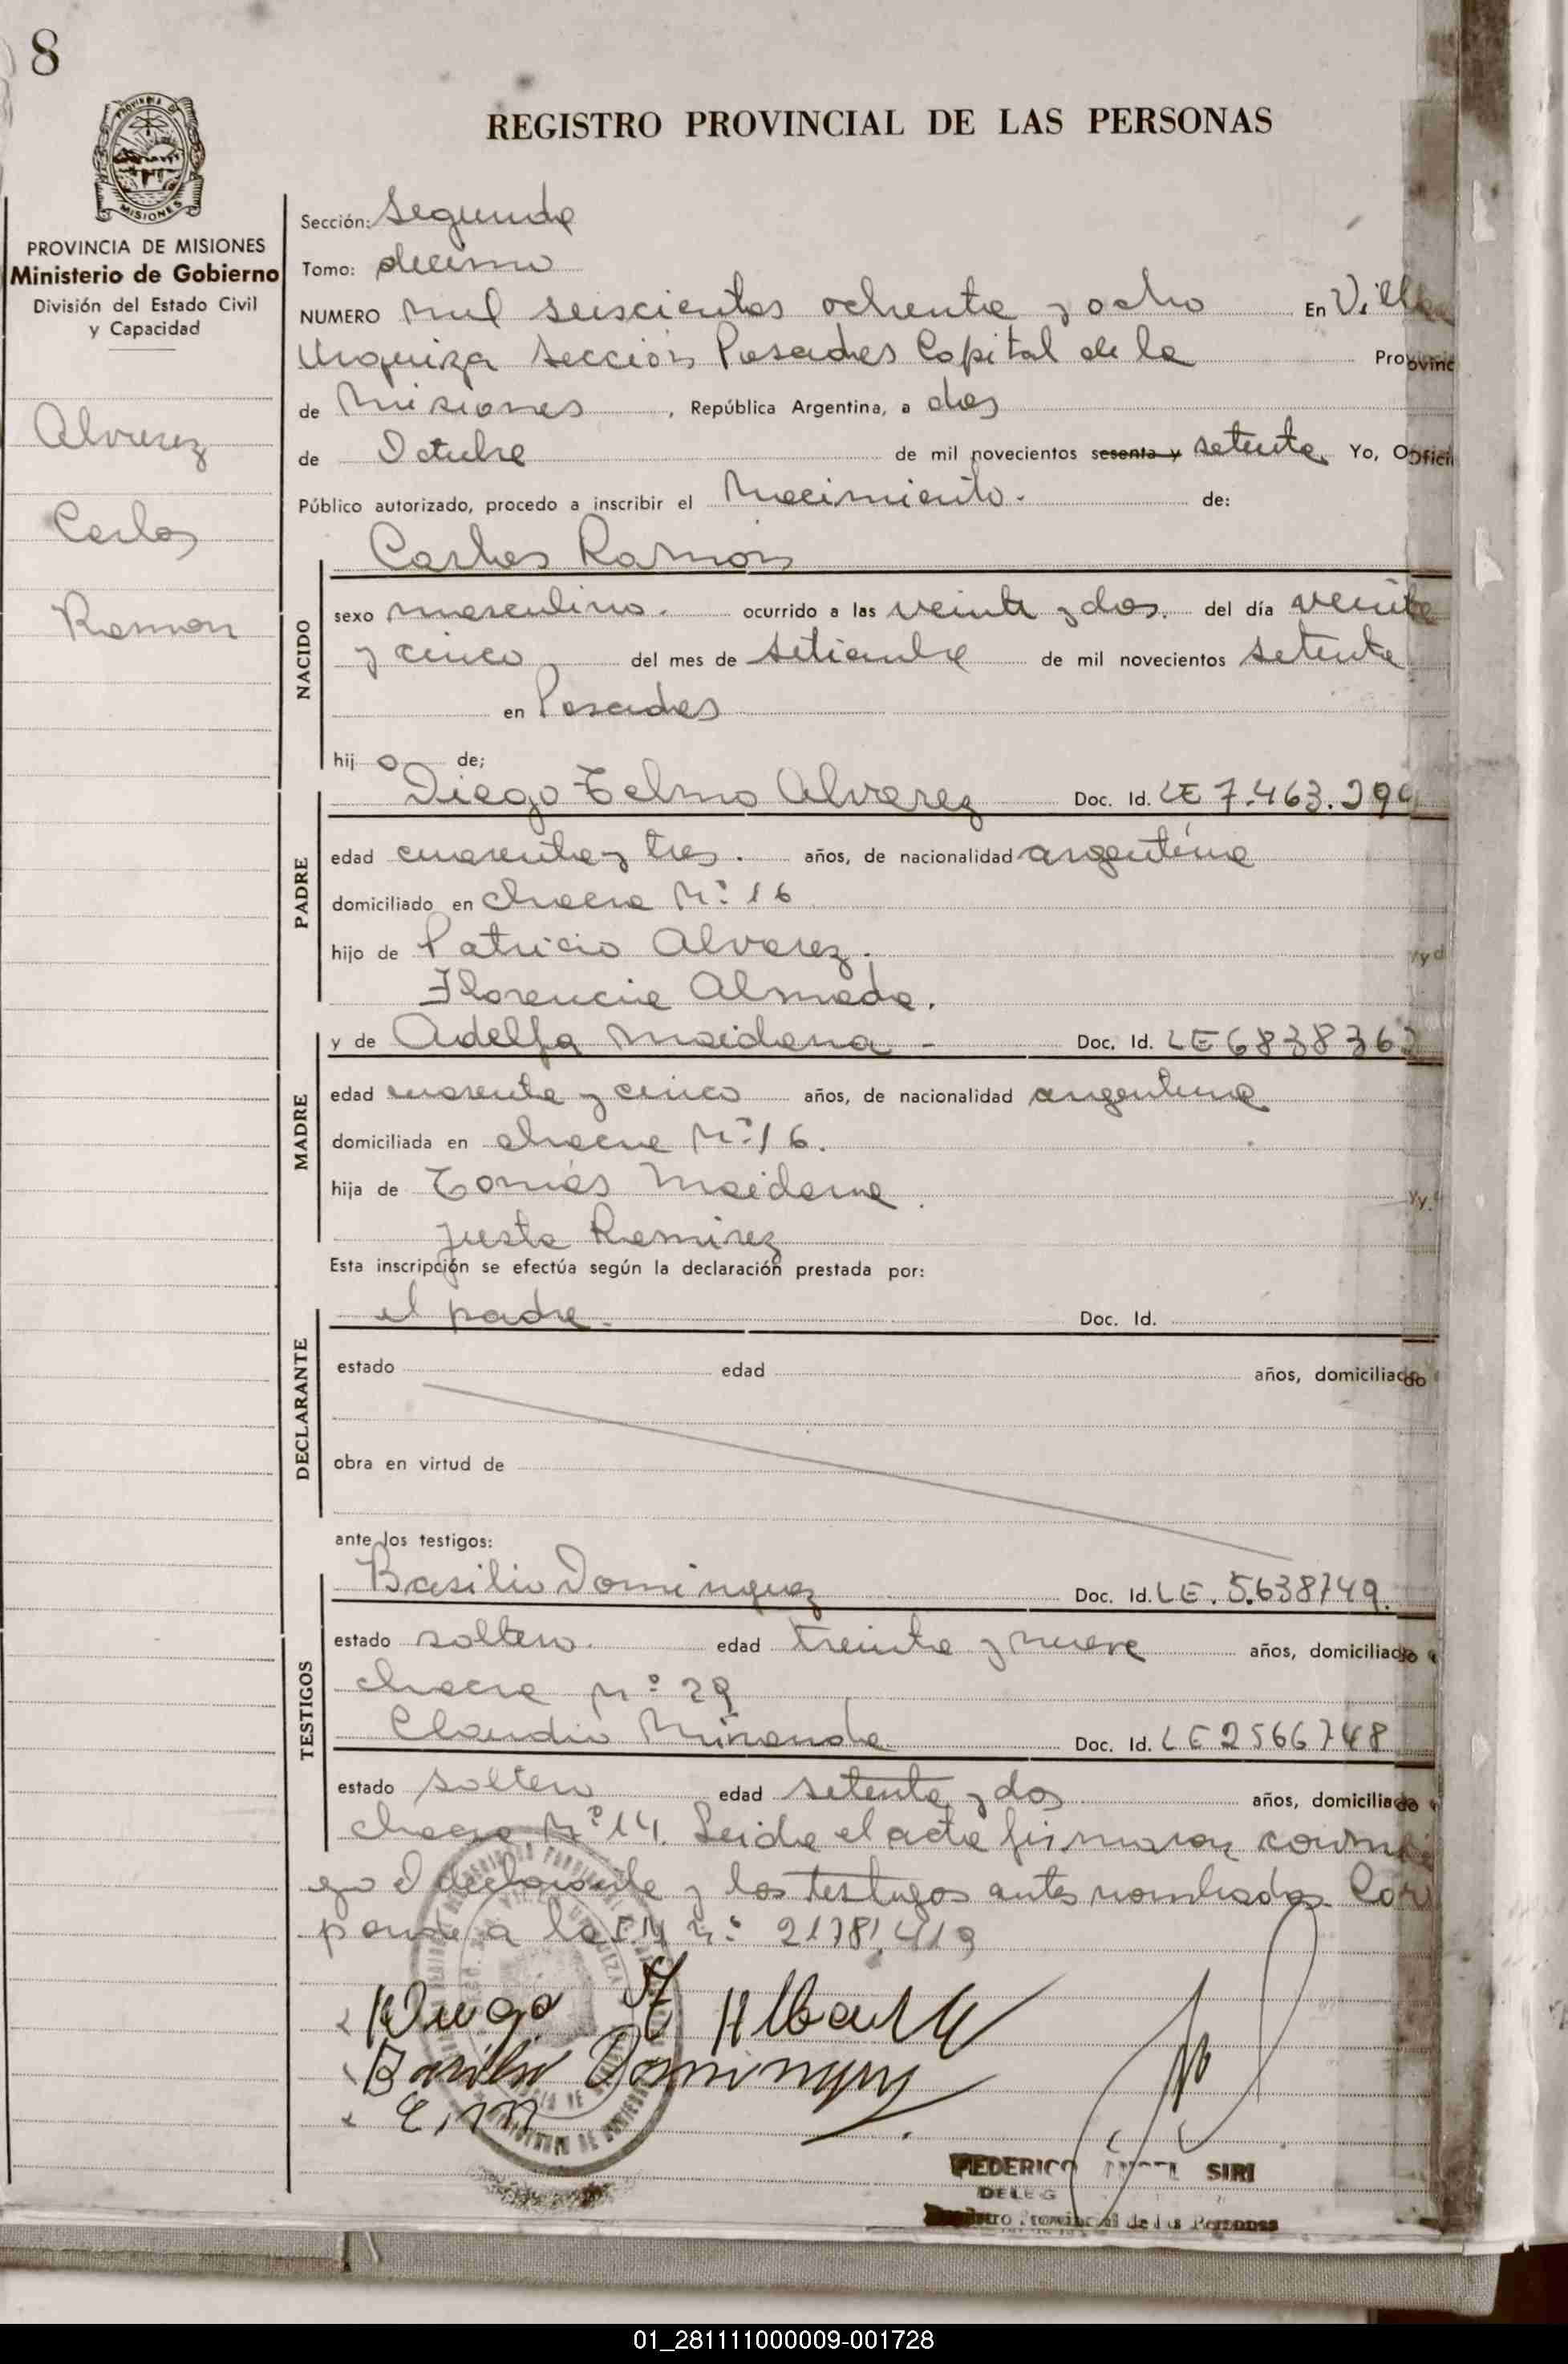 8
REGISTRO PROVINCIAL DE LAS PERSONAS
PROVINCIA DE MISIONES
Ministerio de Gobierno
División del Estado Civil
y Capacidad
Alvarez
Carlos
Ramon
Sección: Segunda
Tomo: decimo
NUMERO mil seiscientos ochenta y ocho En Villa
Urquiza sección Posadas Capital de la Provinc
de Misiones, República Argentina, a dos
de Octubre de mil novecientos sesenta y setenta. Yo, Ofici
Público autorizado, procedo a inscribir el Nacimiento. de:
Carlos Ramón
NACIDO
sexo masculino. ocurrido a las veinte y dos. del día veinte
y cinco del mes de setiembre de mil novecientos setenta
en Posadas
hij o de;
PADRE
Diego Telmo Alvarez Doc. Id. LE 7.463.
edad cuarenta y tres. años, de nacionalidad argentina
domiciliado en chacra N.º 16
hijo de Patricio Alvarez. y
Florencia Almada.
MADRE
y de Adelfa Maidana - Doc. Id. LE 683836
edad cuarenta y cinco años, de nacionalidad argentina
domiciliada en chacra N.º 16.
hija de Tomás Maidana. y
Justa Ramirez
Esta inscripción se efectúa según la declaración prestada por:
DECLARANTE
el padre. Doc. Id.
estado edad años, domiciliado
obra en virtud de
ante los testigos:
TESTIGOS
Basilio Dominguez Doc. Id. LE. 5.638749.
estado soltero. edad treinta y nueve años, domiciliado
chacra N.º 29
Claudio Miranda Doc. Id. LE 2566748
estado soltero edad setenta y dos años, domiciliado
chacra N.º 14. Leida el acta firmaron conmi
go el declarante y los testigos antes nombrados. Cor
ponde a la N.º 21781.419
Diego T Albarez
Basilio Dominguez
C. M
FEDERICO ANGEL SIRI
DELEG
Registro Provincial de las Personas
01_281111000009-001728